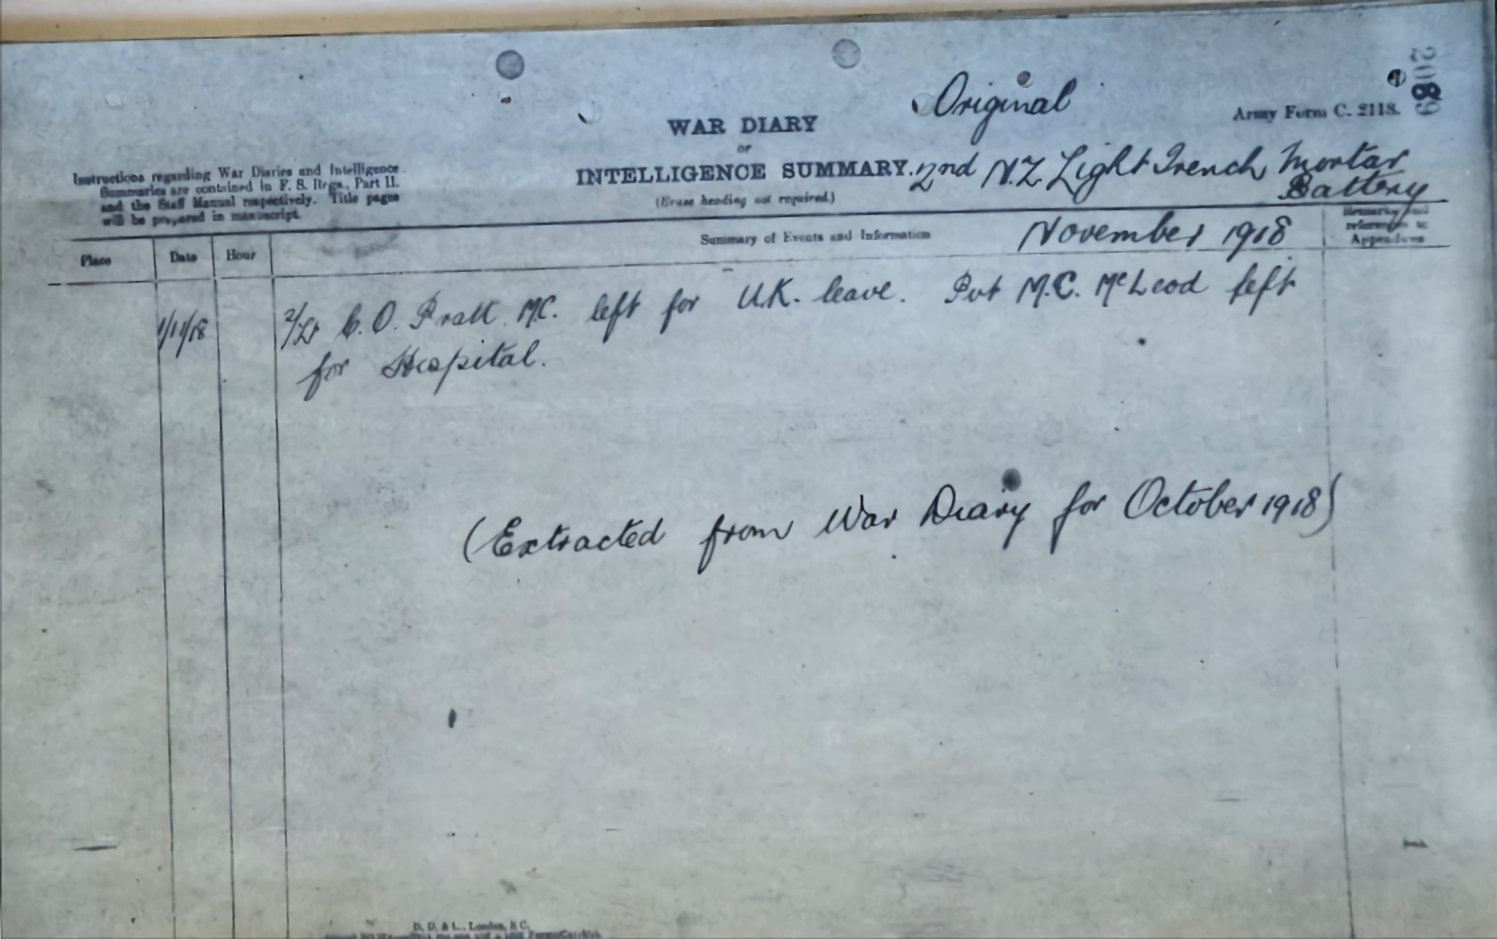 2089
Original
Army Form C. 2118.
WAR DIARY
or
INTELLIGENCE SUMMARY.
(Erase heading not required.)
2nd N.Z Light Trench Mortar
Battery
Instructions regarding War Diaries and Intelligence
Summaries are contained in F. S. Regs., Part II.
and the Staff Manual respectively. Title pages
will be prepared in manuscript.
November 1918
Place
Date
Hour
Summary of Events and Information
Remarks and
references to
Appendices
1/11/18
2/Lt C. O. Pratt M.C. left for U.K. leave. Pvt M.C. McLeod left
for Hospital.
(Extracted from War Diary for October 1918)
1
D. D. & L., London, E.C.